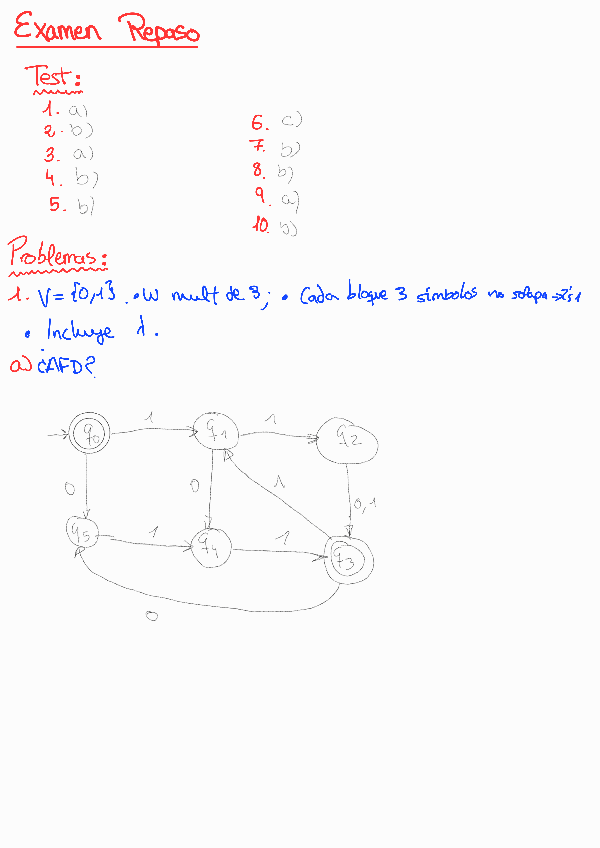 Examen Repaso
Test:
1. a)
2. b)
3. a)
4. b)
5. b)
6. c)
7. b)
8. b)
9. a)
10. b)
Problemas:
1. V = {0,1} . • W mult de 3; • Cada bloque 3 símbolos no solapa →
• Incluye λ.
a) ¿AFD?
1 1
q0 q1 q2
0 0 1 0,1
q5 1 q4 1 q3
0